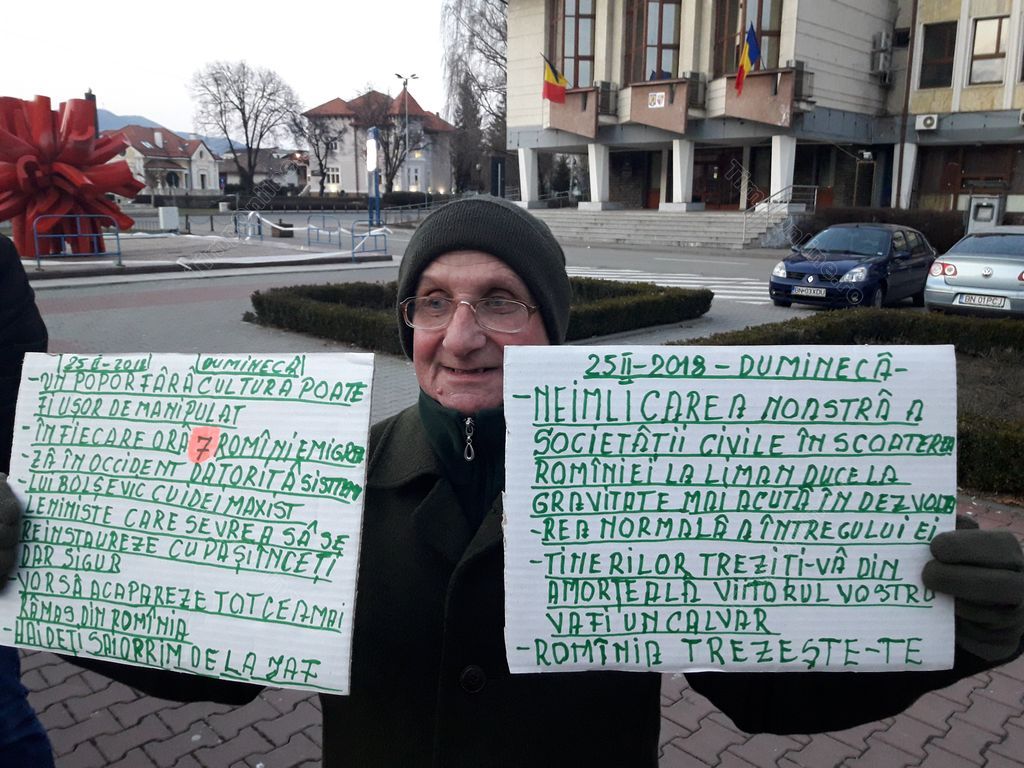 25 II-2018 DUMINECĂ
-UN POPOR FĂRĂ CULTURĂ POATE
FI UȘOR DE MANIPULAT
-ÎN FIECARE ORĂ 7 ROMÎNI EMIGREA
-ZĂ ÎN OCCIDENT DATORITĂ SISTEM
-LUI BOLȘEVIC CU IDEI MAXIST
LENINISTE CARE SE VREA SĂ SE
REINSTAUREZE CU PAȘI ÎNCEȚI
DAR SIGUR
VOR SĂ ACAPAREZE TOT CE A MAI
RĂMAS DIN ROMÎNIA
-HAIDEȚI SĂ I OPRIM DE LA JAF
25 II-2018-DUMINECĂ-
-NEIMLICAREA NOASTRĂ A
SOCIETĂȚII CIVILE ÎN SCOATEREA
ROMÎNIEI LA LIMAN DUCE LA
GRAVITATE MAI ACUTĂ ÎN DEZVOLTA
-REA NORMALĂ A ÎNTREGULUI EI
-TINERILOR TREZIȚI-VĂ DIN
AMORȚEALĂ VIITORUL VOSTRU
VA FI UN CALVAR
-ROMÎNIA TREZEȘTE-TE
BN 03XDU
BN 01PCJ